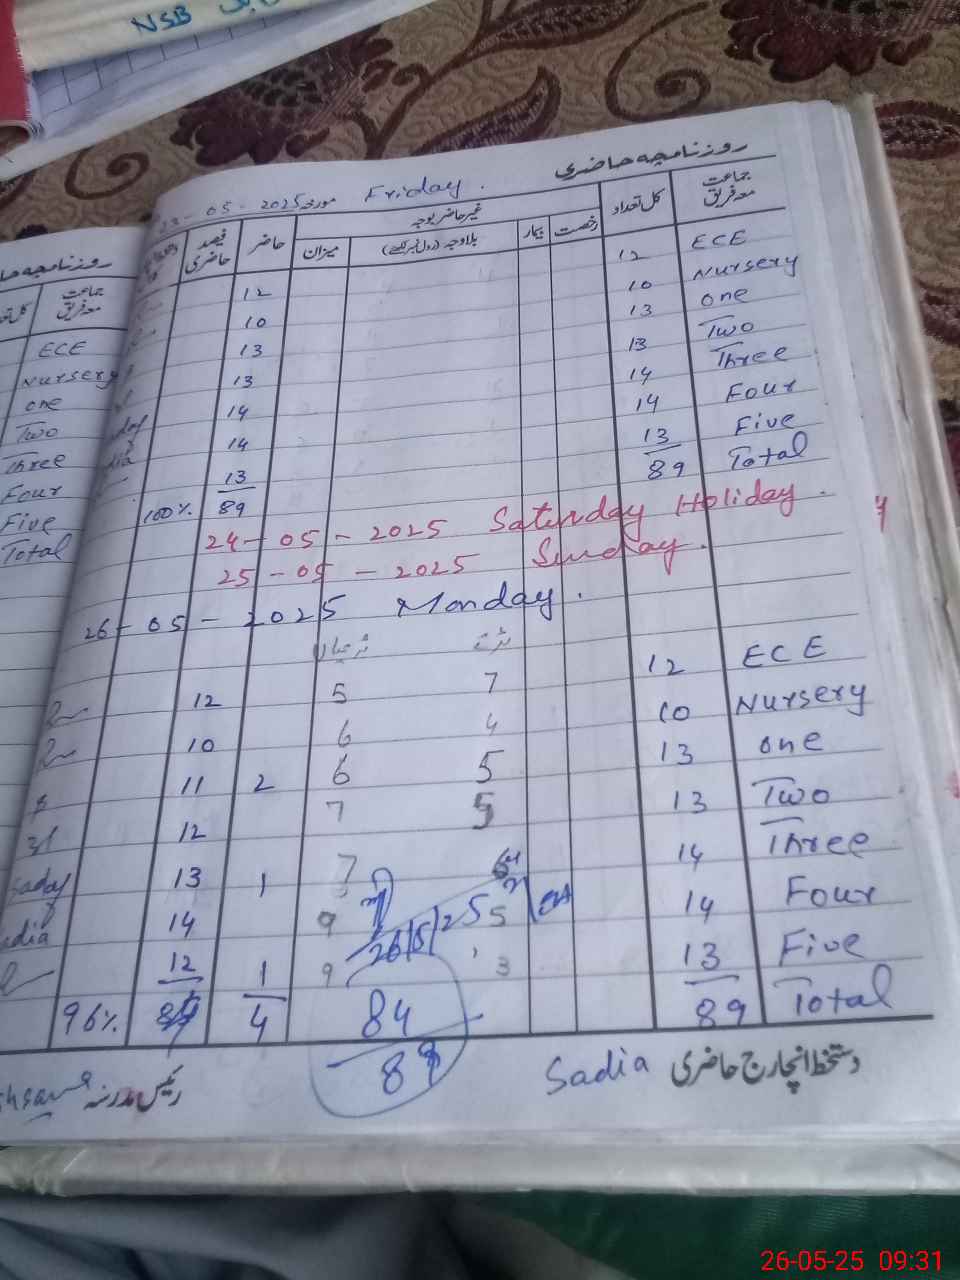 NSB
روزنامچہ حاضری
23-05-2025 مورخہ Friday.
جماعت معہ فریق کل تعداد غیر حاضر بوجہ حاضر فیصد حاضری
رخصت بیمار بلاوجہ (رول نمبر لکھیے) میزان
ECE 12 12
Nursery 10 10
one 13 13
Two 13 13
Three 14 14
Four 14 14
Five 13 13
Total 89 89 100%
24-05-2025 Saturday Holiday.
25-05-2025 Sunday.
26-05-2025 Monday.
ECE 12 7 5 12
Nursery 10 4 6 10
one 13 5 6 2 11
Two 13 5 7 12
Three 14 6 7 1 13
Four 14 5 9 14
26/5/25
Five 13 3 9 1 12
Total 89 84 4 96%
89
دستخط انچارج حاضری Sadia
رئیس مدرسہ
روزنامچہ حا
جماعت معہ فریق
کل تعد
ECE
Nursery
one
Two
Three
Four
Five
Total
26-05-25 09:31